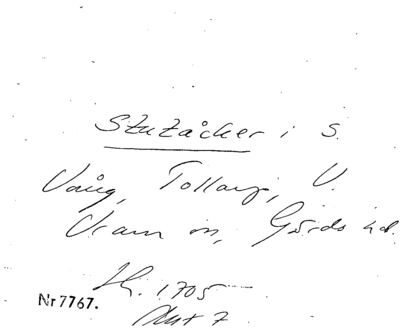 Stutåcker i S.
Vång, Tollarp, V.
Vram sn, Gärds hd.
1705
Akt 7
Nr 7767.